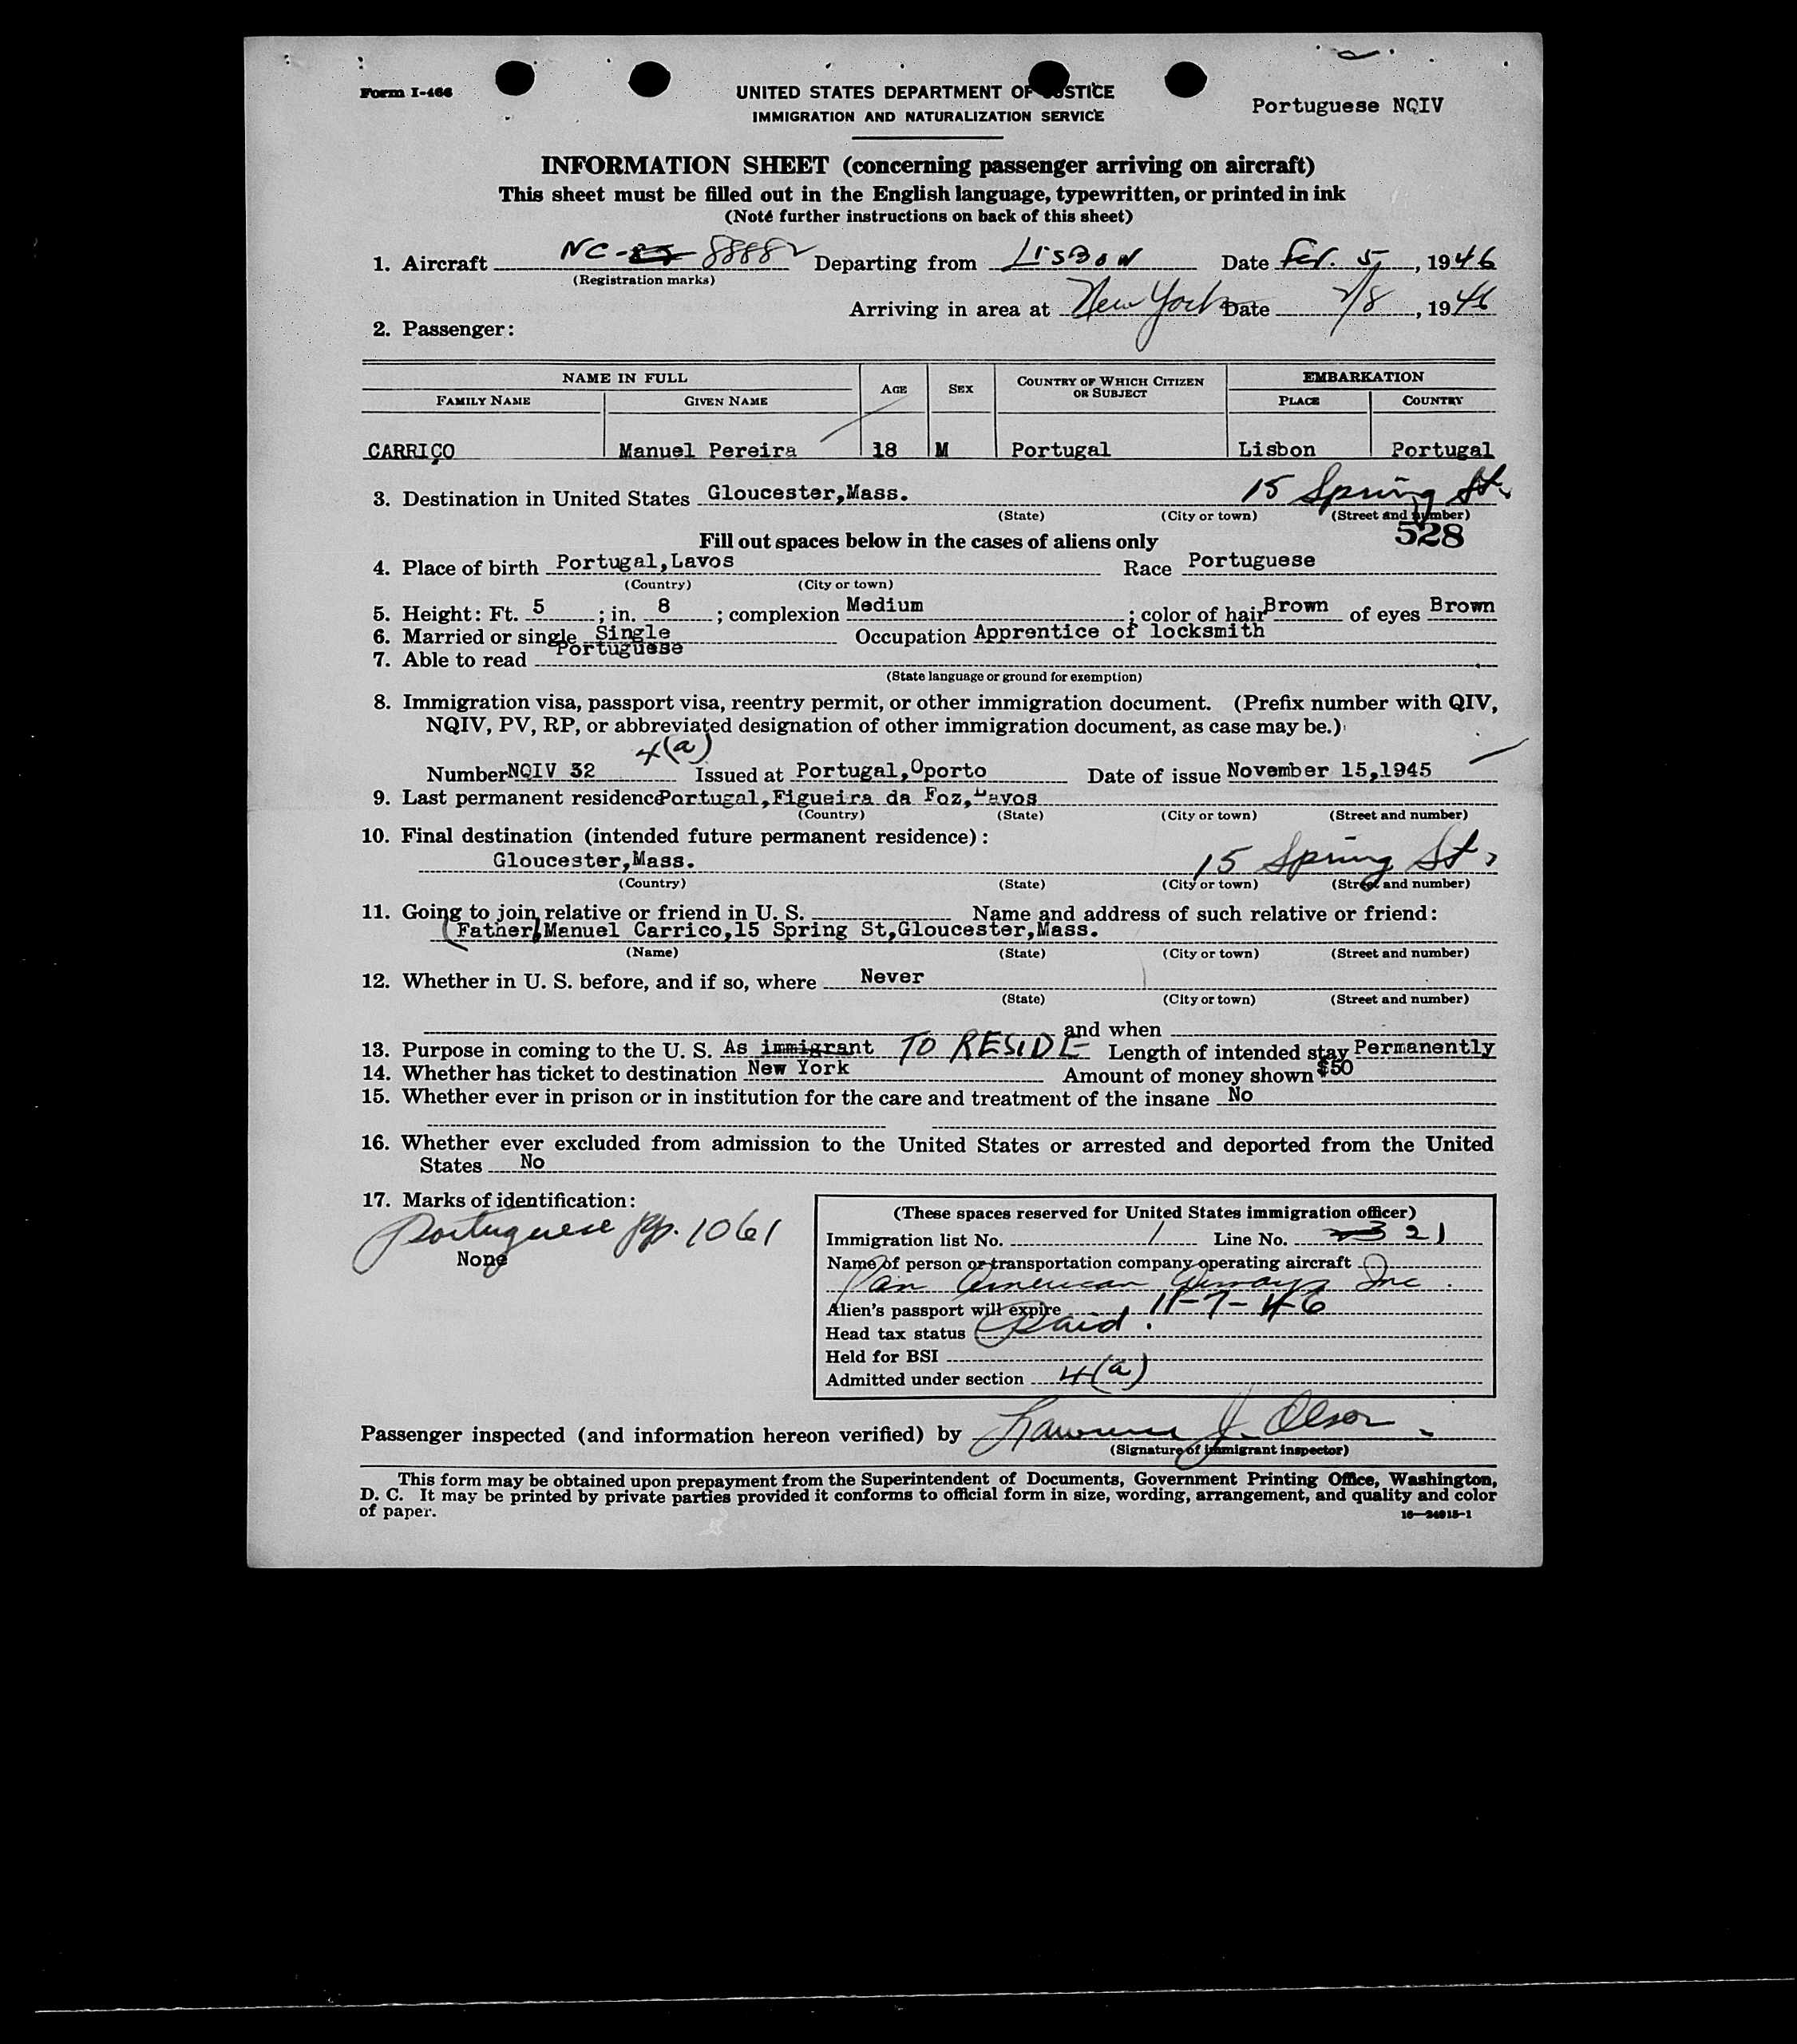 Form I-466
UNITED STATES DEPARTMENT OF JUSTICE
IMMIGRATION AND NATURALIZATION SERVICE
Portuguese NQIV
INFORMATION SHEET (concerning passenger arriving on aircraft)
This sheet must be filled out in the English language, typewritten, or printed in ink
(Note further instructions on back of this sheet)
1. Aircraft NC- 88882 Departing from LISBON Date Feb. 5, 1946
(Registration marks)
Arriving in area at New York Date 2/8, 1946
2. Passenger:
NAME IN FULL AGE SEX COUNTRY OF WHICH CITIZEN OR SUBJECT EMBARKATION
FAMILY NAME GIVEN NAME PLACE COUNTRY
CARRIÇO Manuel Pereira 18 M Portugal Lisbon Portugal
3. Destination in United States Gloucester,Mass. 15 Spring St.
(State) (City or town) (Street and number)
528
Fill out spaces below in the cases of aliens only
4. Place of birth Portugal,Lavos Race Portuguese
(Country) (City or town)
5. Height: Ft. 5 ; in. 8 ; complexion Medium ; color of hair Brown of eyes Brown
6. Married or single Single Occupation Apprentice of locksmith
7. Able to read Portuguese
(State language or ground for exemption)
8. Immigration visa, passport visa, reentry permit, or other immigration document. (Prefix number with QIV,
NQIV, PV, RP, or abbreviated designation of other immigration document, as case may be.)
4(a)
Number NQIV 32 Issued at Portugal,Oporto Date of issue November 15,1945
9. Last permanent residence Portugal,Figueira da Foz,Lavos
(Country) (State) (City or town) (Street and number)
10. Final destination (intended future permanent residence):
Gloucester,Mass. 15 Spring St.
(Country) (State) (City or town) (Street and number)
11. Going to join relative or friend in U. S. Name and address of such relative or friend:
(Father) Manuel Carrico,15 Spring St,Gloucester,Mass.
(Name) (State) (City or town) (Street and number)
12. Whether in U. S. before, and if so, where Never
(State) (City or town) (Street and number)
and when
13. Purpose in coming to the U. S. As immigrant TO RESIDE Length of intended stay Permanently
14. Whether has ticket to destination New York Amount of money shown $50
15. Whether ever in prison or in institution for the care and treatment of the insane No
16. Whether ever excluded from admission to the United States or arrested and deported from the United
States No
17. Marks of identification:
Portuguese pp. 1061
None
(These spaces reserved for United States immigration officer)
Immigration list No. 1 Line No. 21
Name of person or transportation company operating aircraft
Pan American Airways Inc.
Alien's passport will expire 11-7-46
Head tax status Paid.
Held for BSI
Admitted under section 4(a)
Passenger inspected (and information hereon verified) by Lawrence J. Olson
(Signature of immigrant inspector)
This form may be obtained upon prepayment from the Superintendent of Documents, Government Printing Office, Washington,
D. C. It may be printed by private parties provided it conforms to official form in size, wording, arrangement, and quality and color
of paper.
16—24915-1